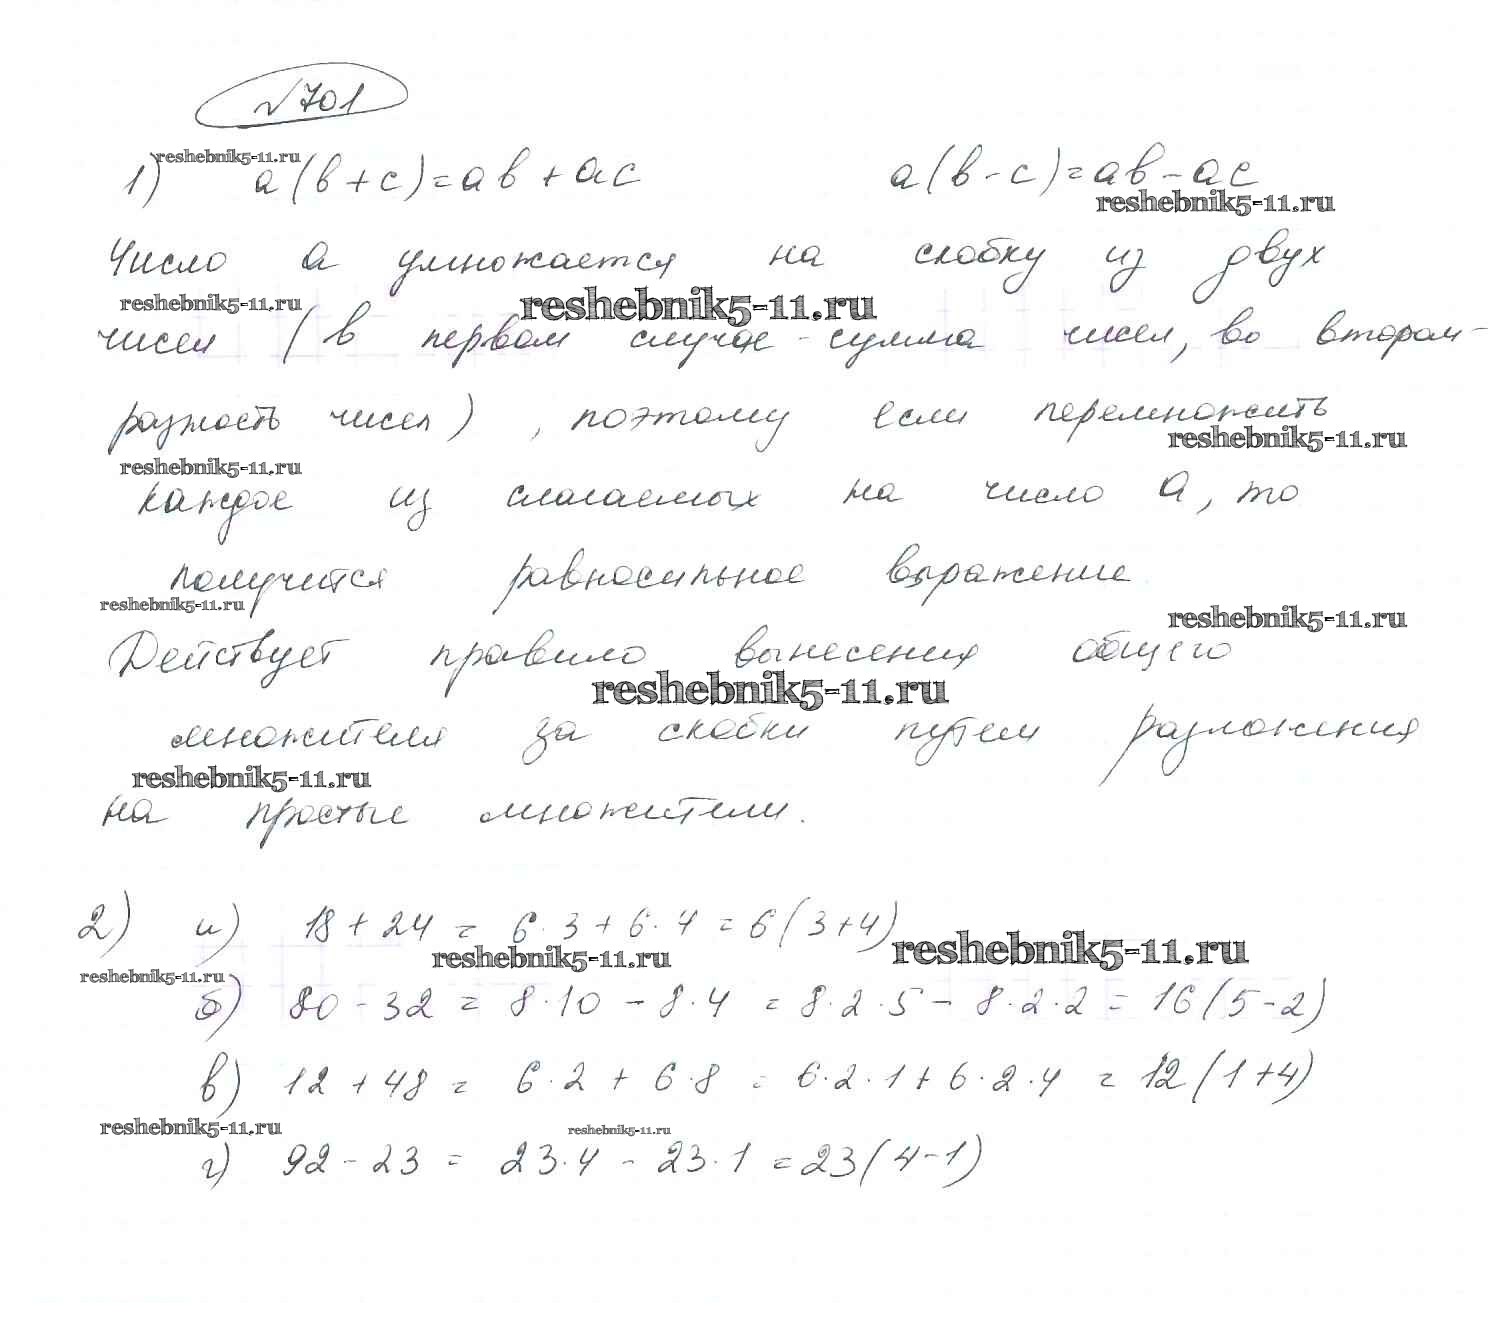 √701
1) a(b+c)=ab+ac a(b-c)=ab-ac
reshebnik5-11.ru
reshebnik5-11.ru
Число a умножается на скобку из двух
reshebnik5-11.ru reshebnik5-11.ru
чисел (в первом случае - сумма чисел, во втором -
разность чисел), поэтому если перемножить
reshebnik5-11.ru
reshebnik5-11.ru
каждое из слагаемых на число a, то
получится равносильное выражение
reshebnik5-11.ru
reshebnik5-11.ru
Действует правило вынесения общего
reshebnik5-11.ru
множителя за скобки путем разложения
reshebnik5-11.ru
на простые множители.
2) а) 18+24 = 6·3+6·4=6(3+4)
reshebnik5-11.ru reshebnik5-11.ru
reshebnik5-11.ru
б) 80-32 = 8·10-8·4 = 8·2·5-8·2·2 = 16(5-2)
в) 12+48 = 6·2+6·8 = 6·2·1+6·2·4 = 12(1+4)
reshebnik5-11.ru reshebnik5-11.ru
г) 92-23 = 23·4-23·1=23(4-1)